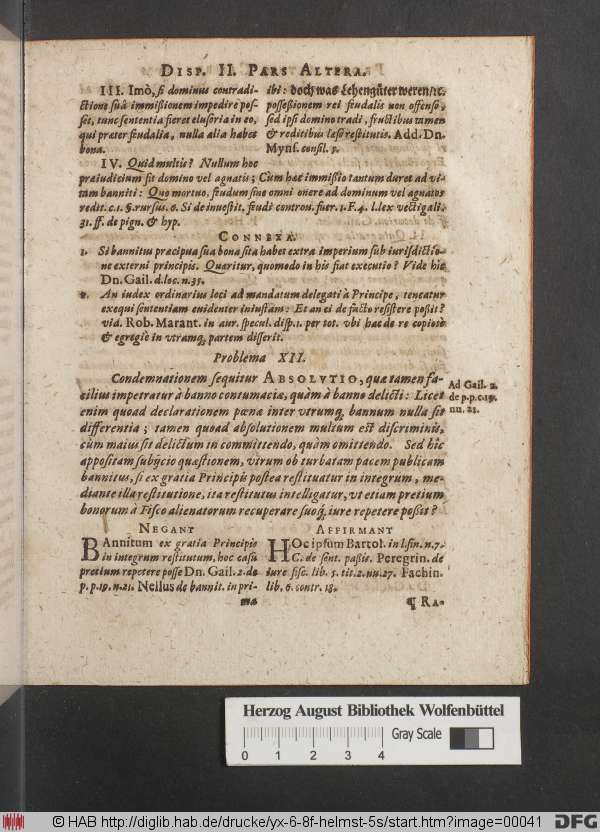 DISP. II. PARS ALTERA.
III. Imò, si dominus contradi-
ctione suâ immissionem impedire pos-
set, tunc sententia fieret elusoria in eo,
qui præter feudalia, nulla alia habet
bona.
IV. Quid multis? Nullum hoc
ibi: doch was Lehengüter weren/ꝛc.
possessionem rei feudalis non offenso,
sed ipsi domino tradi, fructibus tamen
& reditibus læso restitutis. Add. Dn.
Myns. consil. 5.
præiudicium sit domino vel agnatis; Cùm hæc immissio tantum duret ad vi-
tam banniti: Quo mortuo, feudum sine omni onere ad dominum vel agnatos
redit. c. 1. §. rursus. 6. Si de inuestit. feudi controu. fuer. 1. F. 4. l. lex vectigali.
31. ff. de pign. & hyp.
CONNEXA.
1. Si bannitus præcipua sua bona sita habet extra imperium sub iurisdictio-
ne externi principis. Quæritur, quomodo in his fiat executio? Vide hîc
Dn. Gail. d. loc. n. 35.
2. An iudex ordinarius loci ad mandatum delegati à Principe, teneatur
exequi sententiam euidenter iniustam: Et an ei de facto resistere possit?
vid. Rob. Marant. in aur. specul. disp. 1. per tot. vbi hac de re copiosè
& egregiè in vtramq́; partem disserit.
Problema XII.
Condemnationem sequitur ABSOLVTIO, quæ tamen fa-
cilius impetratur à banno contumaciæ, quàm à banno delicti: Licet
enim quoad declarationem pœnæ inter vtrumq́; bannum nulla sit
differentia; tamen quoad absolutionem multum est discriminis,
cùm maius sit delictum in committendo, quàm omittendo. Sed hîc
appositam subijcio quæstionem, vtrum ob turbatam pacem publicam
bannitus, si ex gratia Principis postea restituatur in integrum, me-
diante illa restitutione, ita restitutus intelligatur, vt etiam pretium
bonorum à Fisco alienatorum recuperare suoq́; iure repetere possit?
Ad Gail. 2.
de p.p.c.19.
nu. 21.
NEGANT
BAnnitum ex gratia Principis
in integrum restitutum, hoc casu
pretium repetere posse Dn. Gail. 2. de
p. p. 19. n. 21. Nellus de bannit. in pri-
ma
AFFIRMANT
HOc ipsum Bartol. in l. fin. n. 7.
C. de sent. passis. Peregrin. de
iure fisc. lib. 5. tit. 2. nu. 27. Fachin.
lib. 6. contr. 18.
¶ Ra-
Herzog August Bibliothek Wolfenbüttel
0 1 2 3 4
Gray Scale
© HAB http://diglib.hab.de/drucke/yx-6-8f-helmst-5s/start.htm?image=00041
DFG